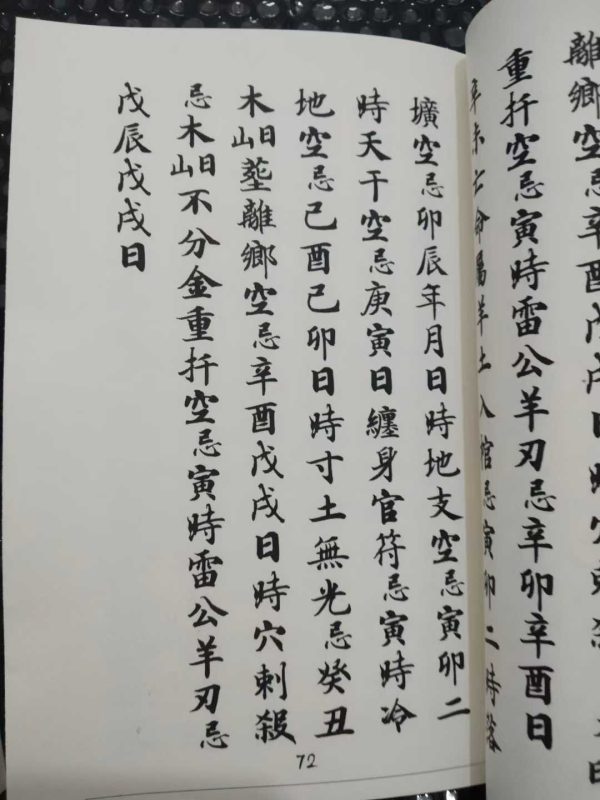 離鄉空忌辛酉戊戌日時穴刺
重扦空忌寅時雷公羊刃忌辛卯辛酉日
辛未亡命屬羊土入棺忌寅卯二時落
壙空忌卯辰年月日時地支空忌寅卯二
時天干空忌庚寅日纏身官符忌寅時冷
地空忌己酉己卯日時寸土無光忌癸丑
木山日塟離鄉空忌辛酉戊戌日時穴刺殺
忌木山日不分金重扦空忌寅時雷公羊刃忌
戊辰戊戌日
72